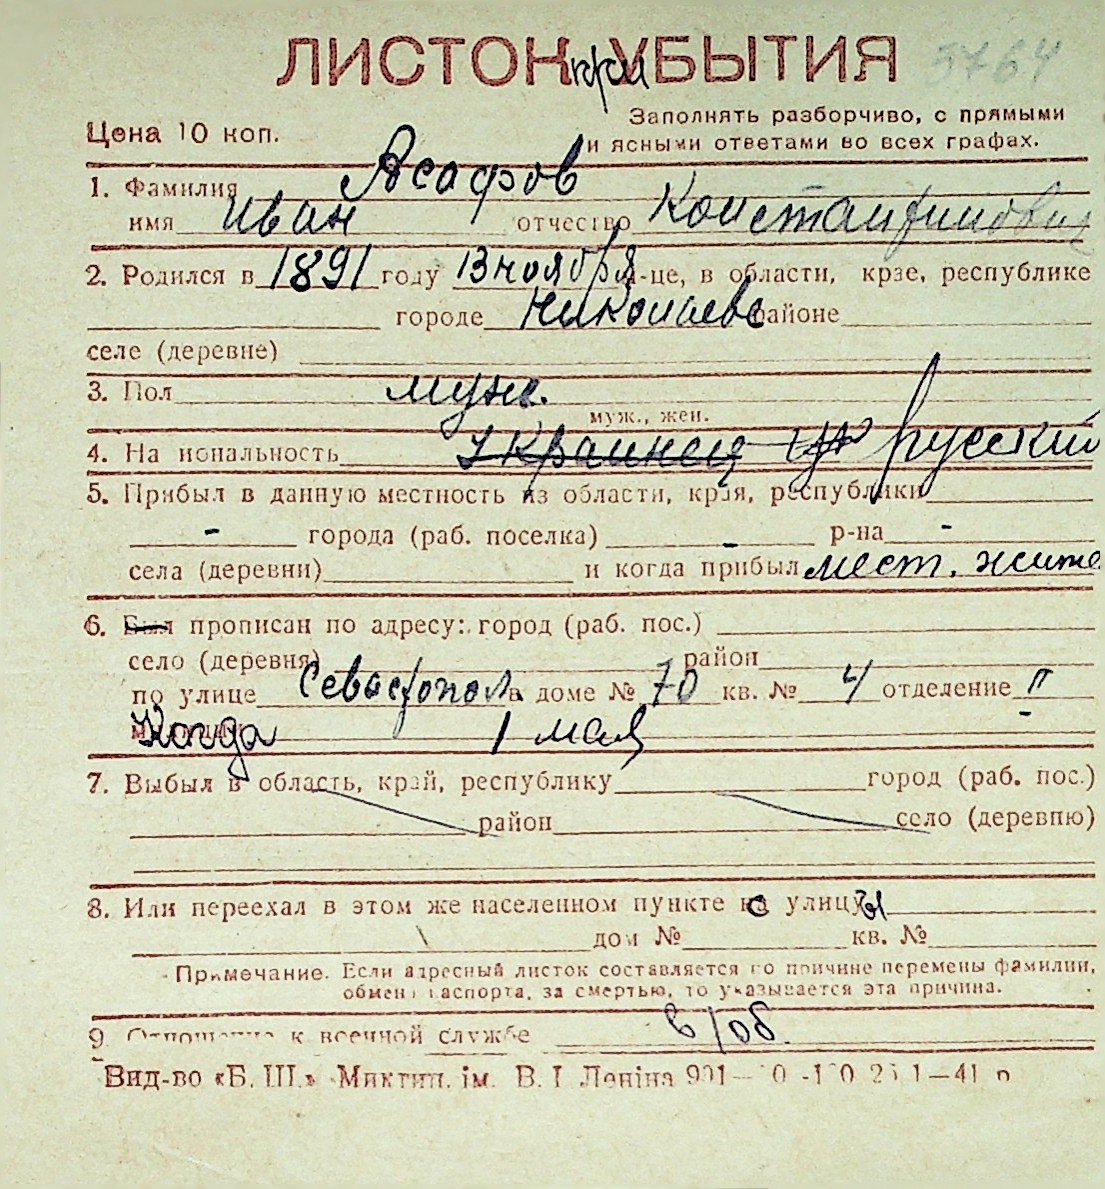 ЛИСТОК при УБЫТИЯ 5764
Цена 10 коп.
Заполнять разборчиво, с прямыми
и ясными ответами во всех графах.
1. Фамилия Асафов
имя Иван отчество Константинович
2. Родился в 1891 году 13 ноября м-це, в области, крае, республике
городе Николаеве районе
селе (деревне)
3. Пол муж.
муж., жен.
4. На иональность украинец русский
5. Прибыл в данную местность из области, края, республики
- города (раб. поселка) - р-на -
села (деревни) и когда прибыл мест. жите
6. Был прописан по адресу: город (раб. пос.)
село (деревня) район
по улице Севастопол в доме № 70 кв. № 4 отделение II
Когда 1 мая
7. Выбыл в область, край, республику город (раб. пос.)
район село (деревню)
8. Или переехал в этом же населенном пункте с улицы
дом № кв. №
Примечание. Если адресный листок составляется по причине перемены фамилии,
обмена паспорта, за смертью, то указывается эта причина.
9 Отношение к военной службе в/об.
Вид-во «Б. Ш.» Миктип. ім. В. І Леніна